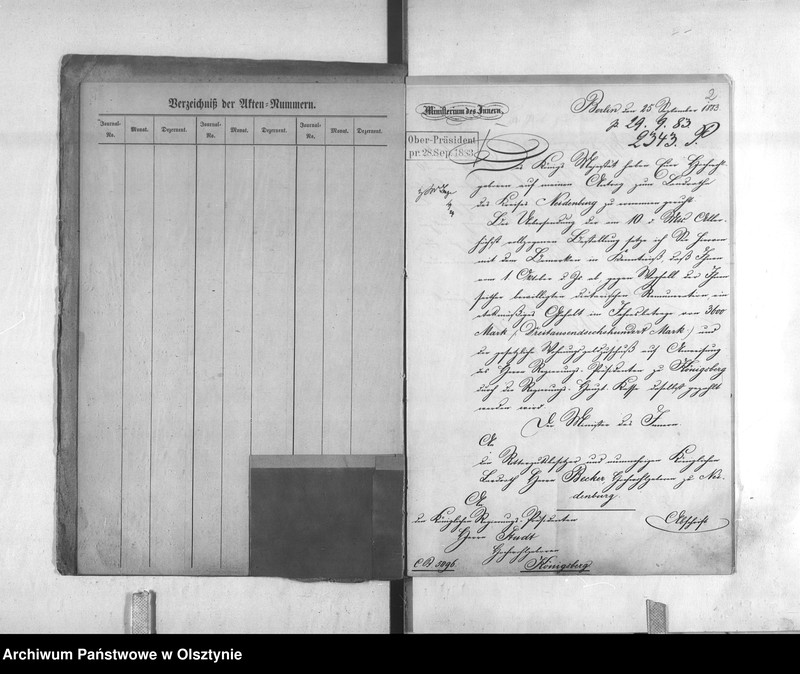 Verzeichniß der Akten-Nummern.
Journal-No. Monat. Dezernent. Journal-No. Monat. Dezernent. Journal-No. Monat. Dezernent.
2
Ministerium des Innern.
Berlin den 25 September 1883
p 29. 9. 83
2343. P.
Ober-Präsident
pr. 28. Sep. 1883
Des Königs Majestät haben Euer Hochwohl-
geboren auf meinen Antrag zum Landrathe
des Kreises Neidenburg zu ernennen geruht.
Die Uebersendung der im 10 d. Mts Aller-
höchst vollzogenen Bestallung setze ich Sie hiervon
mit dem Bemerken in Kenntniß, daß Ihnen
vom 1 October d. Js ab, gegen Wegfall der Ihnen
seither bewilligten diätarischen Remuneration ein
etatsmäßiges Gehalt im Jahresbetrage von 3600
Mark (: Dreitausendsechshundert Mark :) und
der gesetzliche Wohnungsgeldzuschuß auf Anweisung
des Herrn Regierungs-Präsidenten zu Königsberg
durch die Regierungs-Haupt-Kasse daselbst gezahlt
werden wird.
Der Minister des Innern.
An
den Rittergutsbesitzer und nunmehrigen Königlichen
Landrath Herrn Becker Hochwohlgeboren zu Nei-
denburg.
An
den Königlichen Regierungs-Präsidenten
Herrn Studt
Hochwohlgeboren
Königsberg
Abschrift
Archiwum Państwowe w Olsztynie